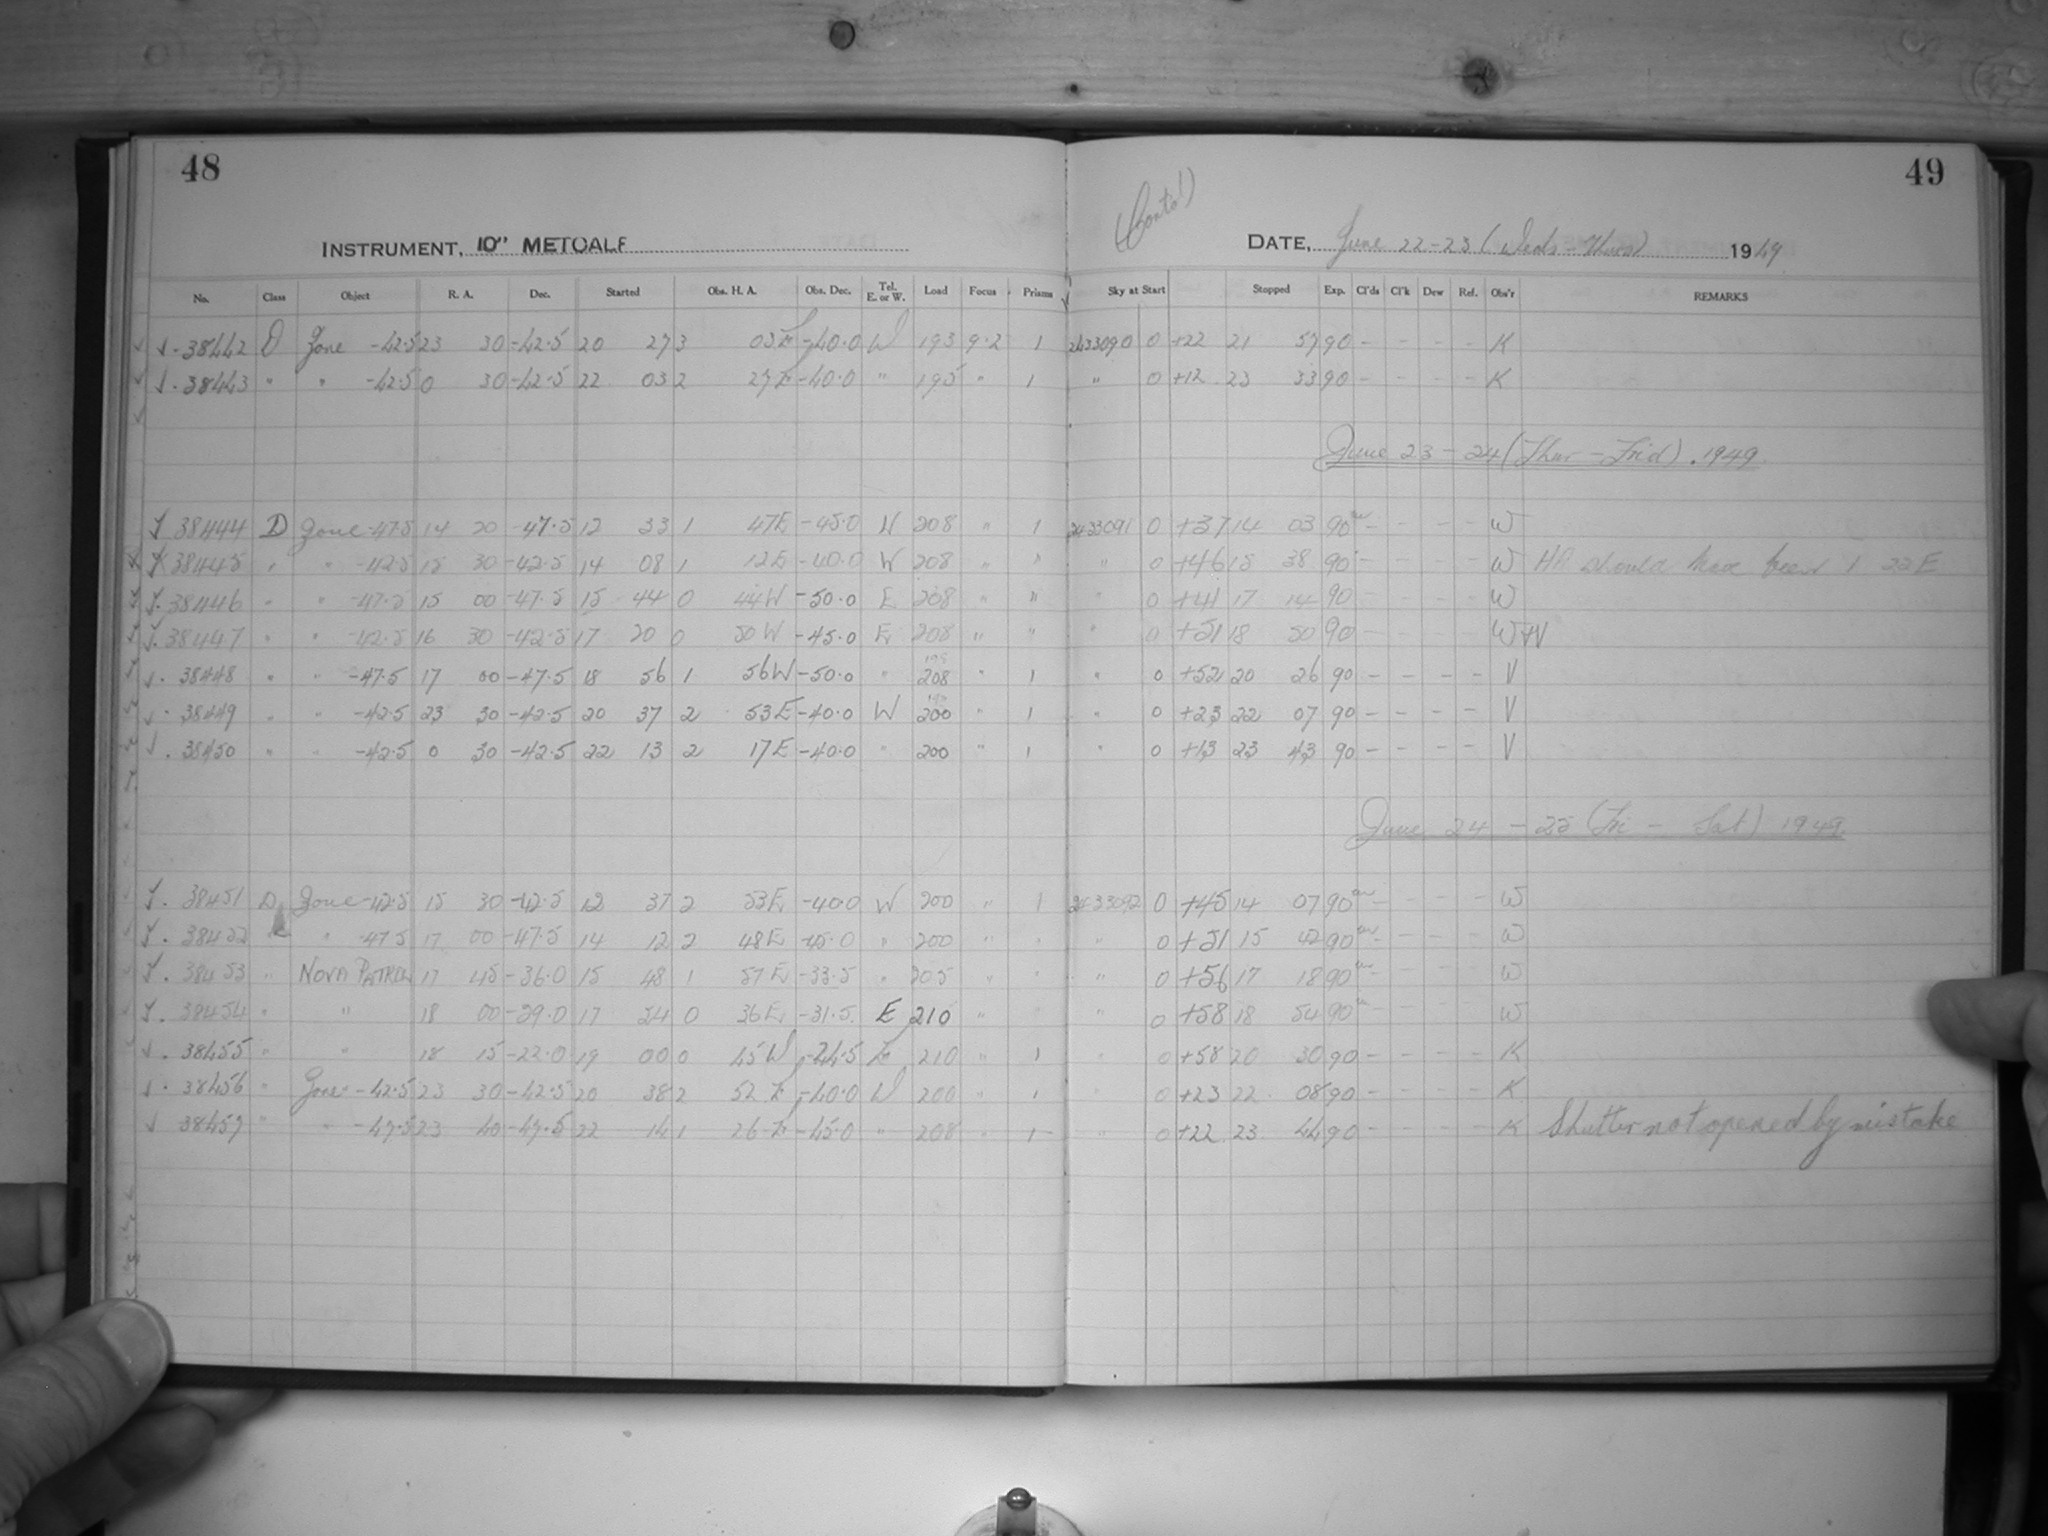 48
49
(Contd)
INSTRUMENT, 10" METCALF
DATE, June 22-23 (Weds-Thurs) 1949
No. Class Object R. A. Dec. Started Obs. H. A. Obs. Dec. Tel. E. or W. Load Focus Prisms Sky at Start Stopped Exp. Cl'ds Cl'k Dew Ref. Obs'r REMARKS
J. 38442 D Zone -42.5 23 30 -42.5 20 27 3 03 E -40.0 W 193 9.2 1 2433090 0 +22 21 57 90 - - - - K
J. 38443 " " -42.5 0 30 -42.5 22 03 2 27 E -40.0 " 195 " 1 " 0 +12 23 33 90 - - - - K
June 23-24 (Thur-Frid). 1949.
J 38444 D Zone -47.5 14 20 -47.5 12 33 1 47E -45.0 W 208 " 1 2433091 0 +37 14 03 90m - - - - W
38445 " " -42.5 15 30 -42.5 14 08 1 12E -40.0 W 208 " " " 0 +46 15 38 90 - - - - W HA should have been 1 22 E
J. 38446 " " -47.5 15 00 -47.5 15 44 0 44W -50.0 E 208 " " " 0 +41 17 14 90 - - - - W
J. 38447 " " -42.5 16 30 -42.5 17 20 0 50W -45.0 E 208 " " " 0 +51 18 50 90 - - - - W+V
J. 38448 " " -47.5 17 00 -47.5 18 56 1 56W -50.0 " 208 " 1 " 0 +52 20 26 90 - - - - V
J. 38449 " " -42.5 23 30 -42.5 20 37 2 53E -40.0 W 200 " 1 " 0 +23 22 07 90 - - - - V
J. 38450 " " -42.5 0 30 -42.5 22 13 2 17E -40.0 " 200 " 1 " 0 +13 23 43 90 - - - - V
June 24 - 25 (Fri - Sat) 1949.
J. 38451 D Zone -42.5 15 30 -42.5 12 37 2 53E -40.0 W 200 " 1 2433092 0 +45 14 07 90m - - - - W
J. 38452 " -47.5 17 00 -47.5 14 12 2 48E -45.0 " 200 " " " 0 +51 15 42 90m - - - - W
J. 38453 " NOVA PATROL 17 45 -36.0 15 48 1 57E -33.5 " 205 " " " 0 +56 17 18 90m - - - - W
J. 38454 " " 18 00 -29.0 17 24 0 36E -31.5 E 210 " " " 0 +58 18 54 90m - - - - W
J. 38455 " " 18 15 -22.0 19 00 0 45W -24.5 E 210 " 1 " 0 +58 20 30 90 - - - - K
J. 38456 " Zone -42.5 23 30 -42.5 20 38 2 52 E -40.0 W 200 " 1 " 0 +23 22 08 90 - - - - K
J 38457 " " -47.5 23 40 -47.5 22 14 1 26 E -45.0 " 208 " 1 " 0 +22 23 44 90 - - - - K Shutter not opened by mistake